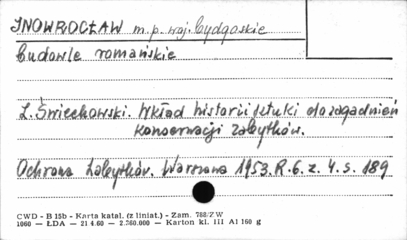 INOWROCŁAW m.p. woj. bydgoskie
budowle romańskie
Z. Świechowski. Wkład historii sztuki do zagadnień
konserwacji zabytków.
Ochrona Zabytków. Warszawa 1953. R. 6. z. 4. s. 189
CWD - B 15b - Karta katal. (z liniat.) - Zam. 788/ZW
1060 — ŁDA — 21 4.60 — 2.380.000 — Karton kl. III A1 160 g